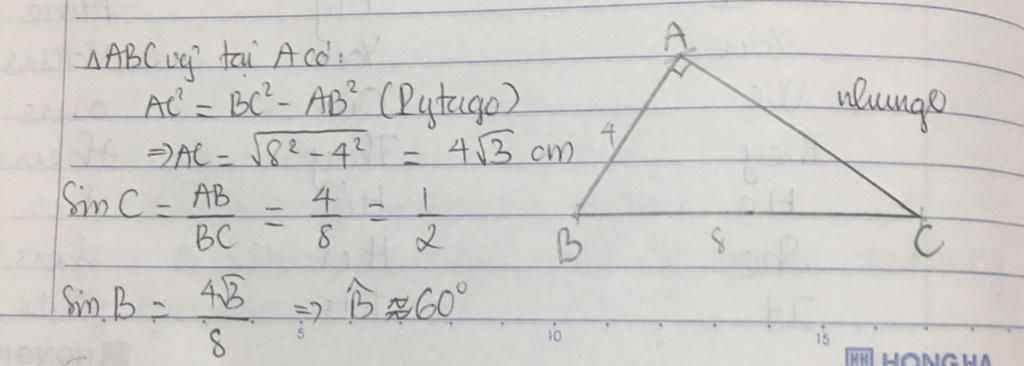 △ABC vg tại A có:
AC² = BC² - AB² (Pytago)
⇒ AC = √(8² - 4²) = 4√3 cm
Sin C = AB/BC = 4/8 = 1/2
Sin B = 4√3/8 ⇒ B̂ ≈ 60°
A
nhungo
4
B
8
C
5
10
15
HONG HA